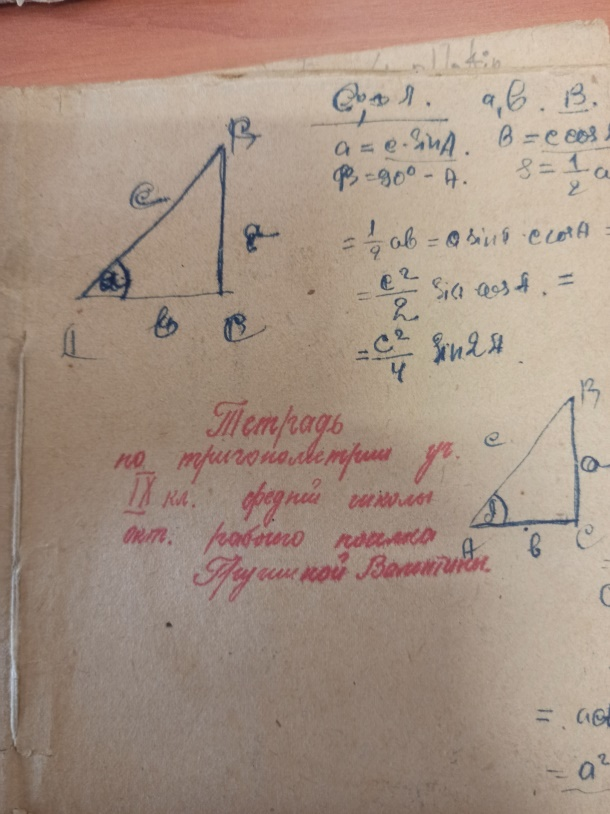 B
c
a
b
a, b. B.
a = c·sinA. B = c cos
B = 90° - A. S = 1/2 a
= 1/2 ab = c sinA · c cosA =
= c²/2 sin cosA. =
= c²/4 sin2A.
Тетрадь
по тригонометрии уч.
IX кл. средней школы
окт. рабочего поселка
Валентины
B
c
a
A b C
=
= a²